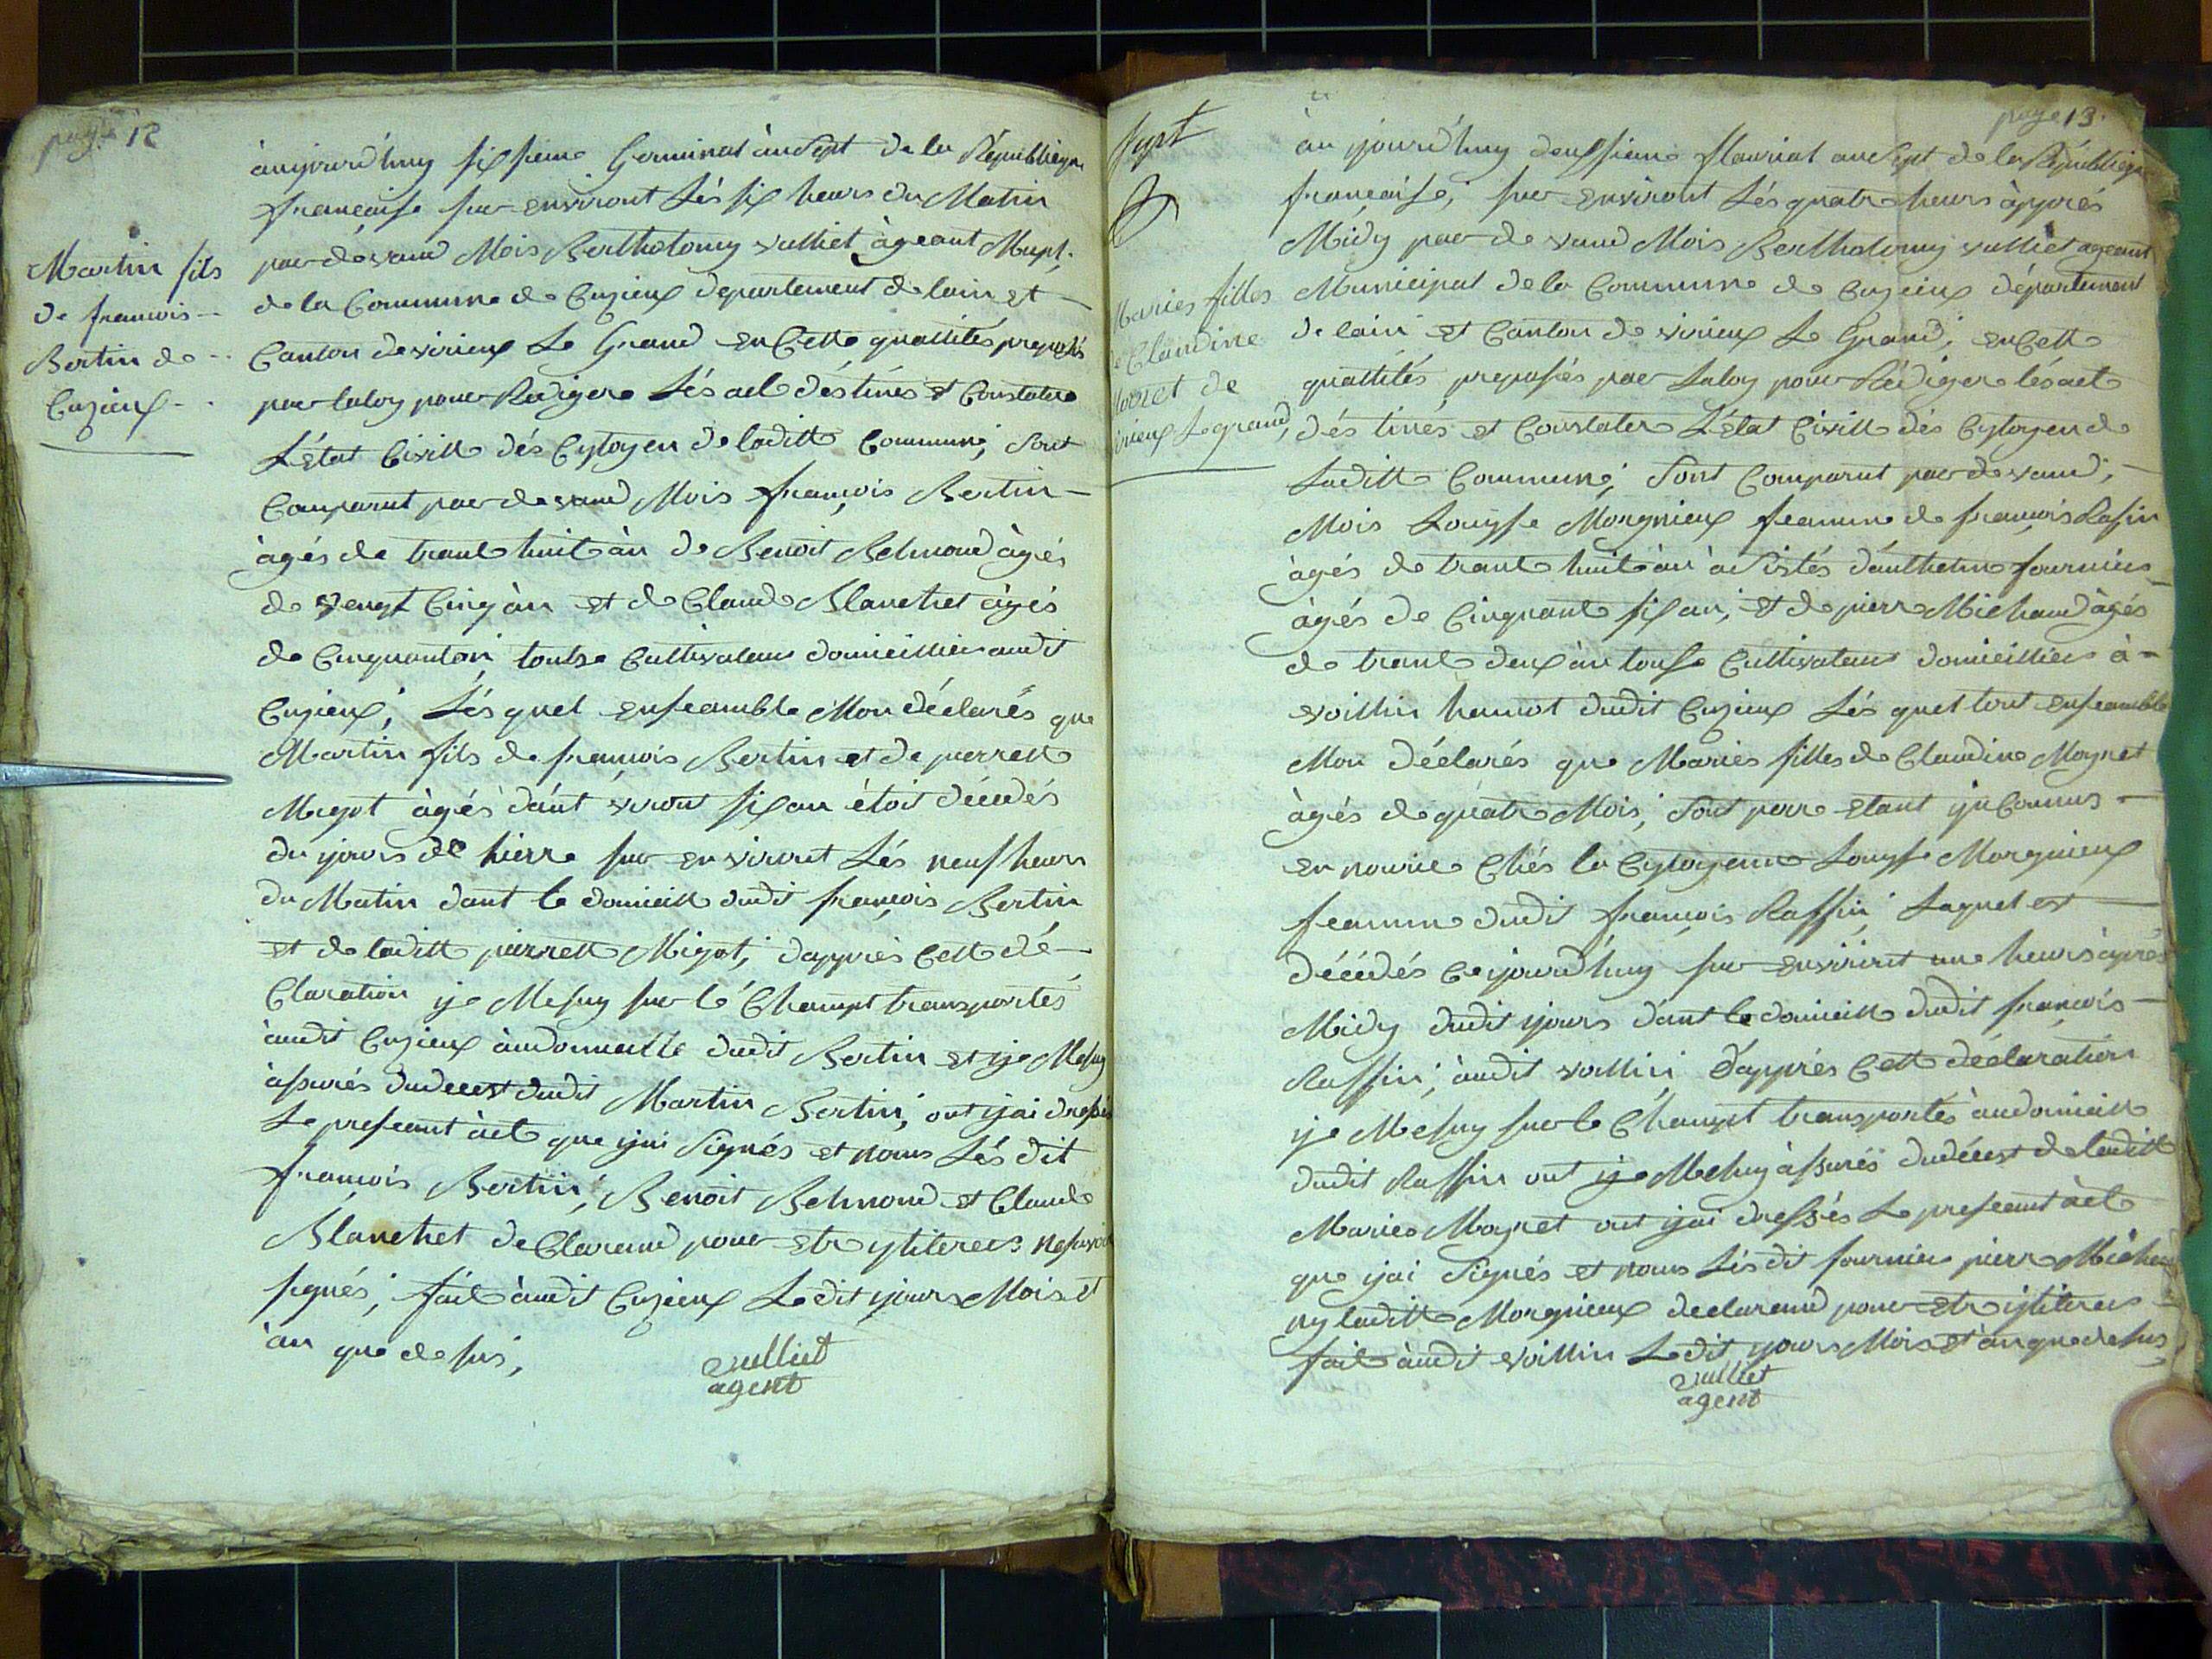 page 12
Martin fils
de francois
Bertin de
Cuzieux
àuijourd'huy sixsieme Germinal àn Sept de la Républiqu
francaise sur environt Lés six heurs du Matin
par devand Mois Bertholomy vulliet àgeant Mupl.
de la Commune de Cuzieux departement de lain et
Canton de virieux Le Grand en Cette quallités preposés
par laloy pour Rediger Lés act déstinés et Constater
L'état Civill dés Cytoyen de laditte Commune, Sont
Comparut par devand Mois françois Bertin
àgés de trante huite àn de Benoit Belmond àgés
de vengt Cinq àn et de Claude Blanchet àgés
de Cinquantan, touts Cultivateur domicillier audit
Cuzieux; Lés quel enseamble Mon déclarés que
Martin fils de francois Bertin et de pierrett
Migot àgés d'ant viront six an étoit décédés
du ijours de hierre sur environt Lés neuf heurs
du Matin dant le domicill dudit françois Bertin
et de laditt pierrett Migot; dapprès Cett dé
Claration ije Mesuy sur le Champt transportés
àudit Cuzieux àudomicille dudit Bertin et ije Mesuy
àssurés dudecest dudit Martin Bertin, ont ijai dressés
Le preseant àct que ijai Signés et nomis Lés dit
françois Bertin, Benoit Belmond et Claude
Blanchet de Clarend pour etr ylliterer nesavoir
signés; fait àudit Cuzieux Ledit ijours Mois et
àn que desus,
vulliet
agent
page 13.
Sept
Maries filles
de Claudine
Moret de
virieux Legrand,
àu ijourd'huy deuxsieme flaurial an Sept de la Républiqu
françaisse, sur environt Lés quatre heurs àpprés
Midy par devand Mois Bertholomy vulliet ageant
Municipal de la Commune de Cuzieux département
de lain et Canton de virieux Le Grand, en Cett
quallités preposés par Laloy pour Rédiger lés act
déstinés et Constater L'état Civill dés Cytoyen de
Laditt Commune; Sont Comparut par devand,
Mois Louysse Morgnieux feamme de françois Rafin
àgés de trante huite àn àsistés d'antheline fournier
àgés de Cinquante six an, et de pierre Michaud àgés
de trante deux àn tous Cultivateur domicillier à
voillin hamot dudit Cuzieux Lés quel tout enseamble
Mon déclarés que Maries filles de Claudine Moyret
àgés de quatre Mois, Sont perre etant ynConnus
en nourice Chés la Cytoyenne Louysse Morgnieux
feamme dudit françois Raffin, Laquel est
décédés Ceijourd'huy sur environt une heurs àprés
Midy dudit ijours dant le domicill dudit françois
Raffin, àudit vollin, d'apprés Cett déclaration
ije Mesuy sur le Champt transportés àudomicill
dudit Raffin ont ije Mesuy àssurés dudécest de laditt
Maries Moyret ont ijai dressés Le preseant àct
que ijai Signés et nomis Lésdit fournier pierre Michaud
ny laditte Morgnieux declarend pour etr ijliterer
fait àudit voillin Ledit ijours Mois et àn que desus,
vulliet
agent